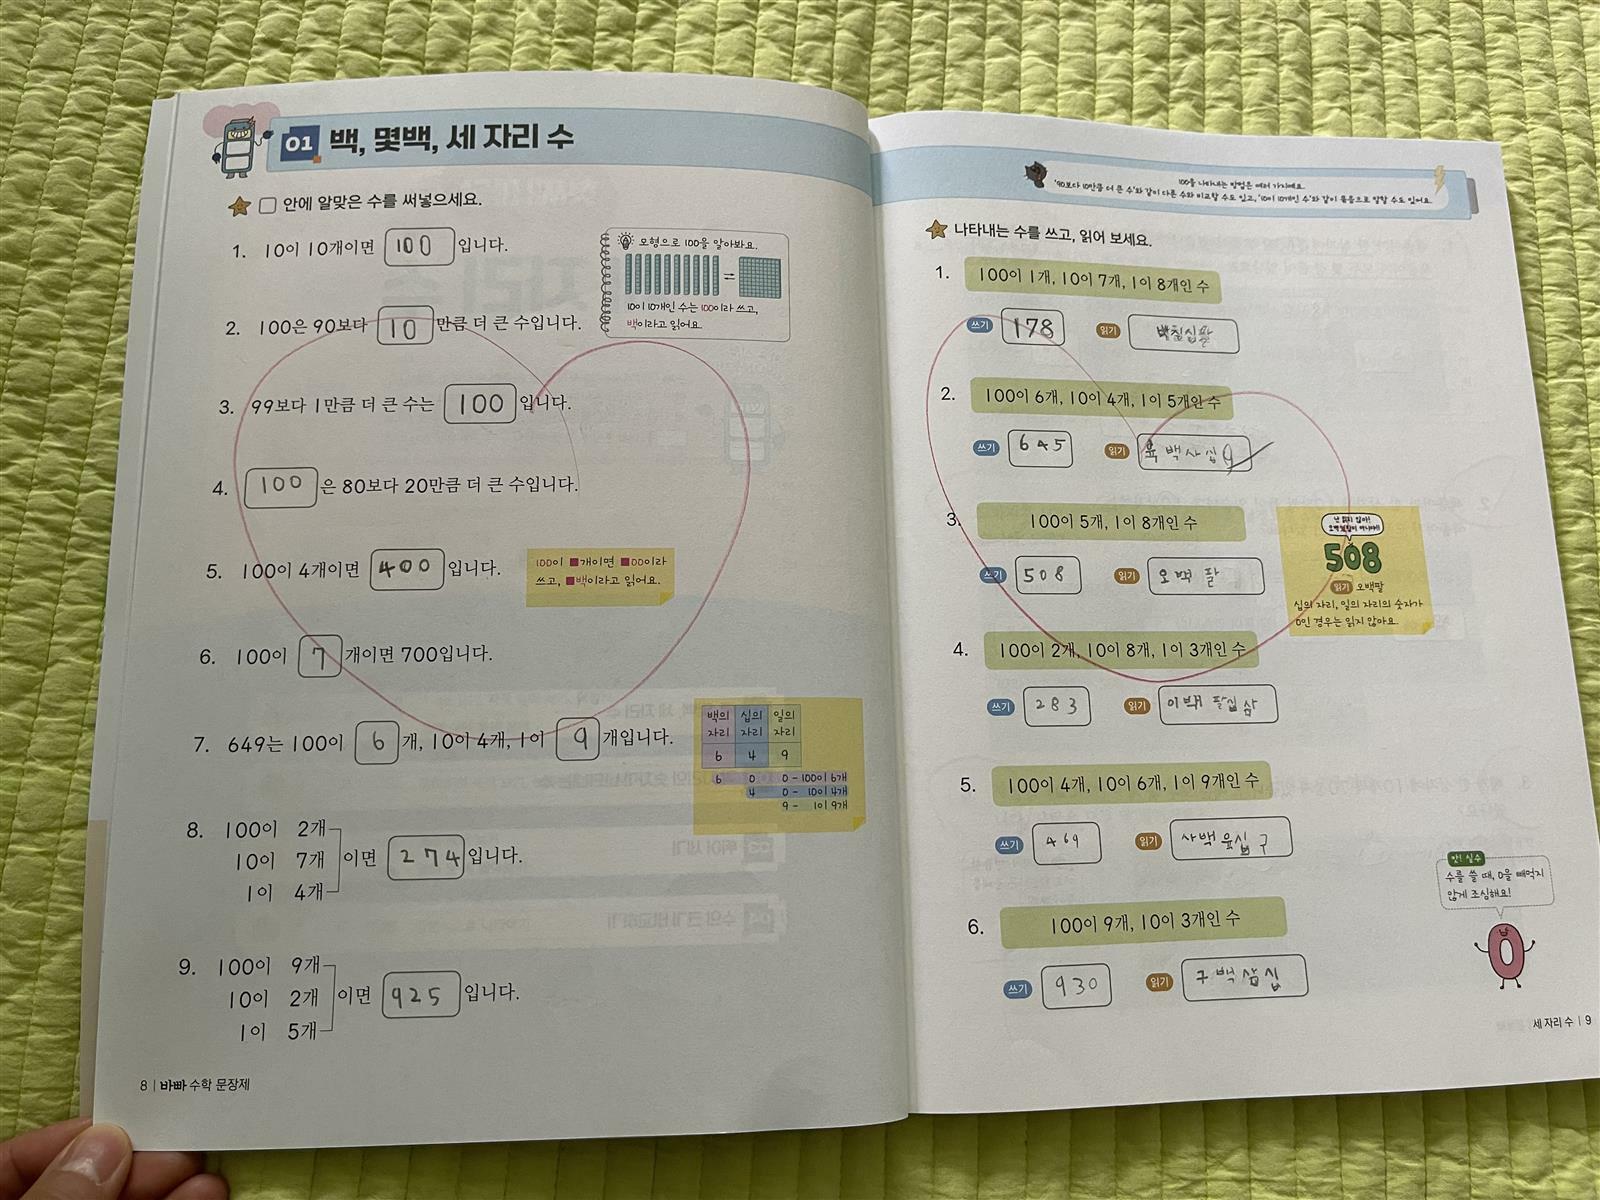 01 백, 몇백, 세 자리 수
□ 안에 알맞은 수를 써넣으세요.
1. 10이 10개이면 100 입니다.
모형으로 100을 알아봐요.
=
10이 10개인 수는 100이라 쓰고,
백이라고 읽어요.
2. 100은 90보다 10 만큼 더 큰 수입니다.
3. 99보다 1만큼 더 큰 수는 100 입니다.
4. 100 은 80보다 20만큼 더 큰 수입니다.
5. 100이 4개이면 400 입니다.
100이 ■개이면 ■00이라
쓰고, ■백이라고 읽어요.
6. 100이 7 개이면 700입니다.
7. 649는 100이 6 개, 10이 4개, 1이 9 개입니다.
백의 자리 십의 자리 일의 자리
6 4 9
6 0 0 - 100이 6개
4 0 - 10이 4개
9 - 1이 9개
8. 100이 2개
10이 7개 이면 274 입니다.
1이 4개
9. 100이 9개
10이 2개 이면 925 입니다.
1이 5개
8 | 바빠 수학 문장제
100을 나타내는 방법은 여러 가지예요.
'90보다 10만큼 더 큰 수'와 같이 다른 수와 비교할 수도 있고, '10이 10개인 수'와 같이 묶음으로 말할 수도 있어요.
나타내는 수를 쓰고, 읽어 보세요.
1. 100이 1개, 10이 7개, 1이 8개인 수
쓰기 178 읽기 백칠십팔
2. 100이 6개, 10이 4개, 1이 5개인 수
쓰기 645 읽기 육백사십
3. 100이 5개, 1이 8개인 수
쓰기 508 읽기 오백팔
508
읽기 오백팔
십의 자리, 일의 자리의 숫자가
0인 경우는 읽지 않아요.
4. 100이 2개, 10이 8개, 1이 3개인 수
쓰기 283 읽기 이백팔십삼
5. 100이 4개, 10이 6개, 1이 9개인 수
쓰기 469 읽기 사백육십구
6. 100이 9개, 10이 3개인 수
쓰기 930 읽기 구백삼십
앗! 실수
수를 쓸 때, 0을 빼먹지
않게 조심해요!
세 자리 수 | 9